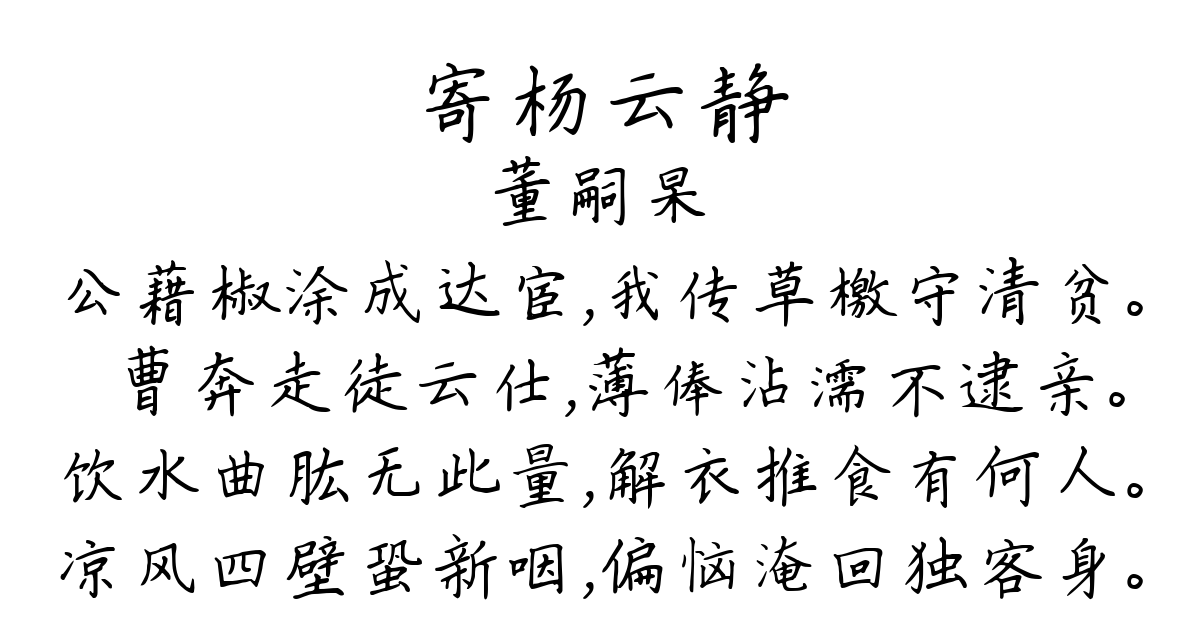 寄杨云静
董嗣杲
公藉椒涂成达宦,我传草檄守清贫。
曹奔走徒云仕,薄俸沾濡不逮亲。
饮水曲肱无此量,解衣推食有何人。
凉风四壁蛩新咽,偏恼淹回独客身。